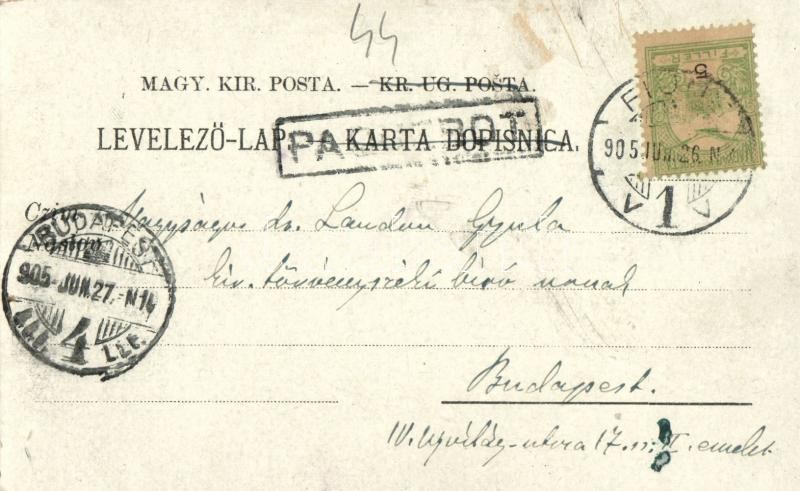 44
MAGY. KIR. POSTA. — KR. UG. POŠTA.
LEVELEZŐ-LAP. — KARTA DOPISNICA.
PAQUEBOT
FILLÉR
5
FIUME
905 JUN. 26. N
1
Czím
Nagyságos dr. Landau Gyula
Naslov
kir. törvényszéki biró urnak
BUDAPEST
905-JUN.27.-N14
4
Budapest.
IV. Ujvilág-utcza 17. II. emelet